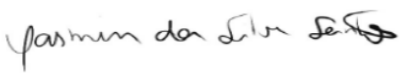 Yasmin da Silva Santos